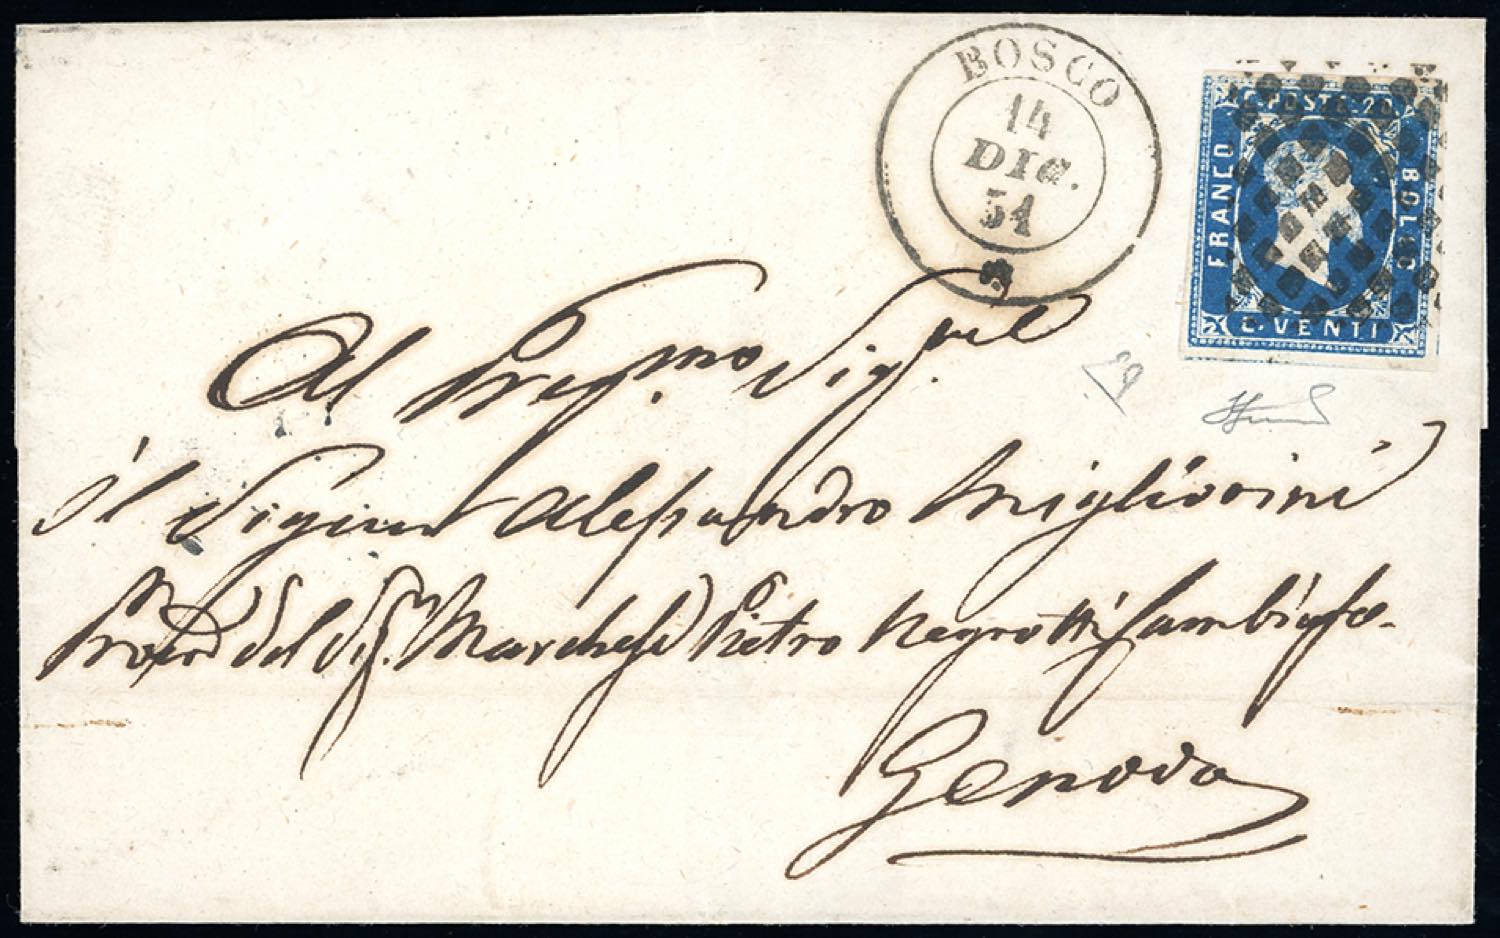 BOSCO
14
DIC.
51
C. POSTE. 20.
FRANCO
BOLLO
C. VENTI
Al Preg.mo Sig.
il Signor Alessandro Migliorini
del Sig. Marchese Pietro Negrotti Cambiaso
Genova